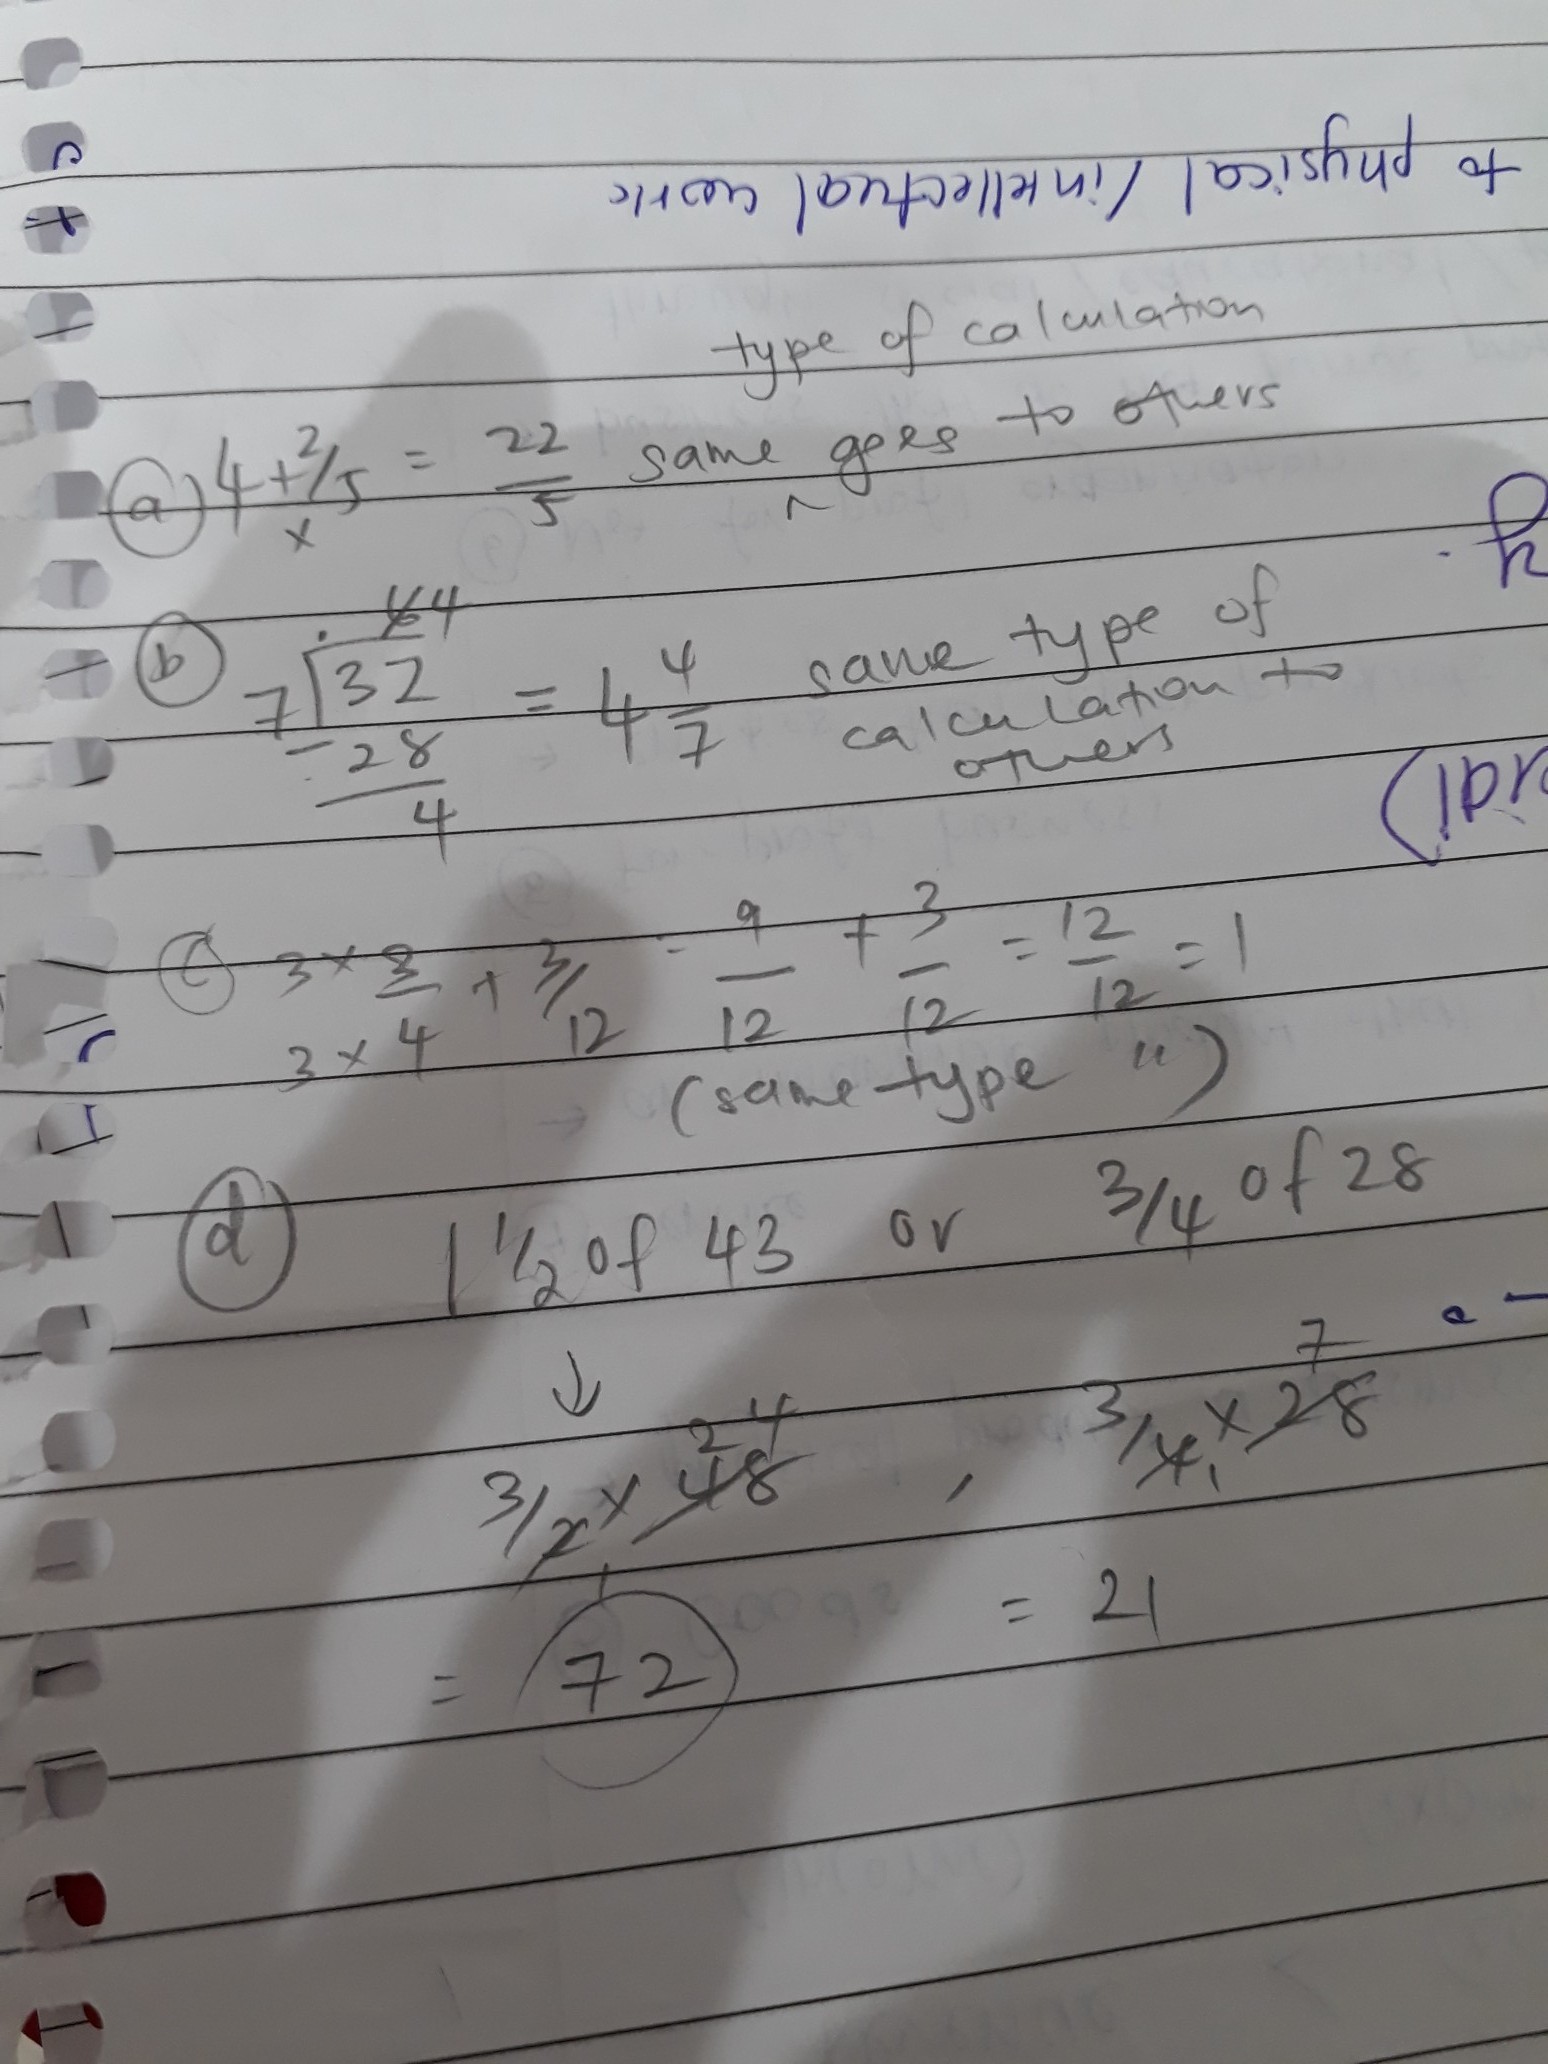 to physical / intellectual work
type of calculation
a) 4 + 2/5 = 22/5 same goes to others
x
b) 64
7 32 = 4 4/7 same type of
- 28 calculation to
4 others
c) 3 × 3 + 3/12 = 9/12 + 3/12 = 12/12 = 1
3 × 4
(same type ")
d) 1 1/2 of 43 or 3/4 of 28
↓
24 7
3/2 × 48 , 3/4 × 28
1 1
= 72 = 21